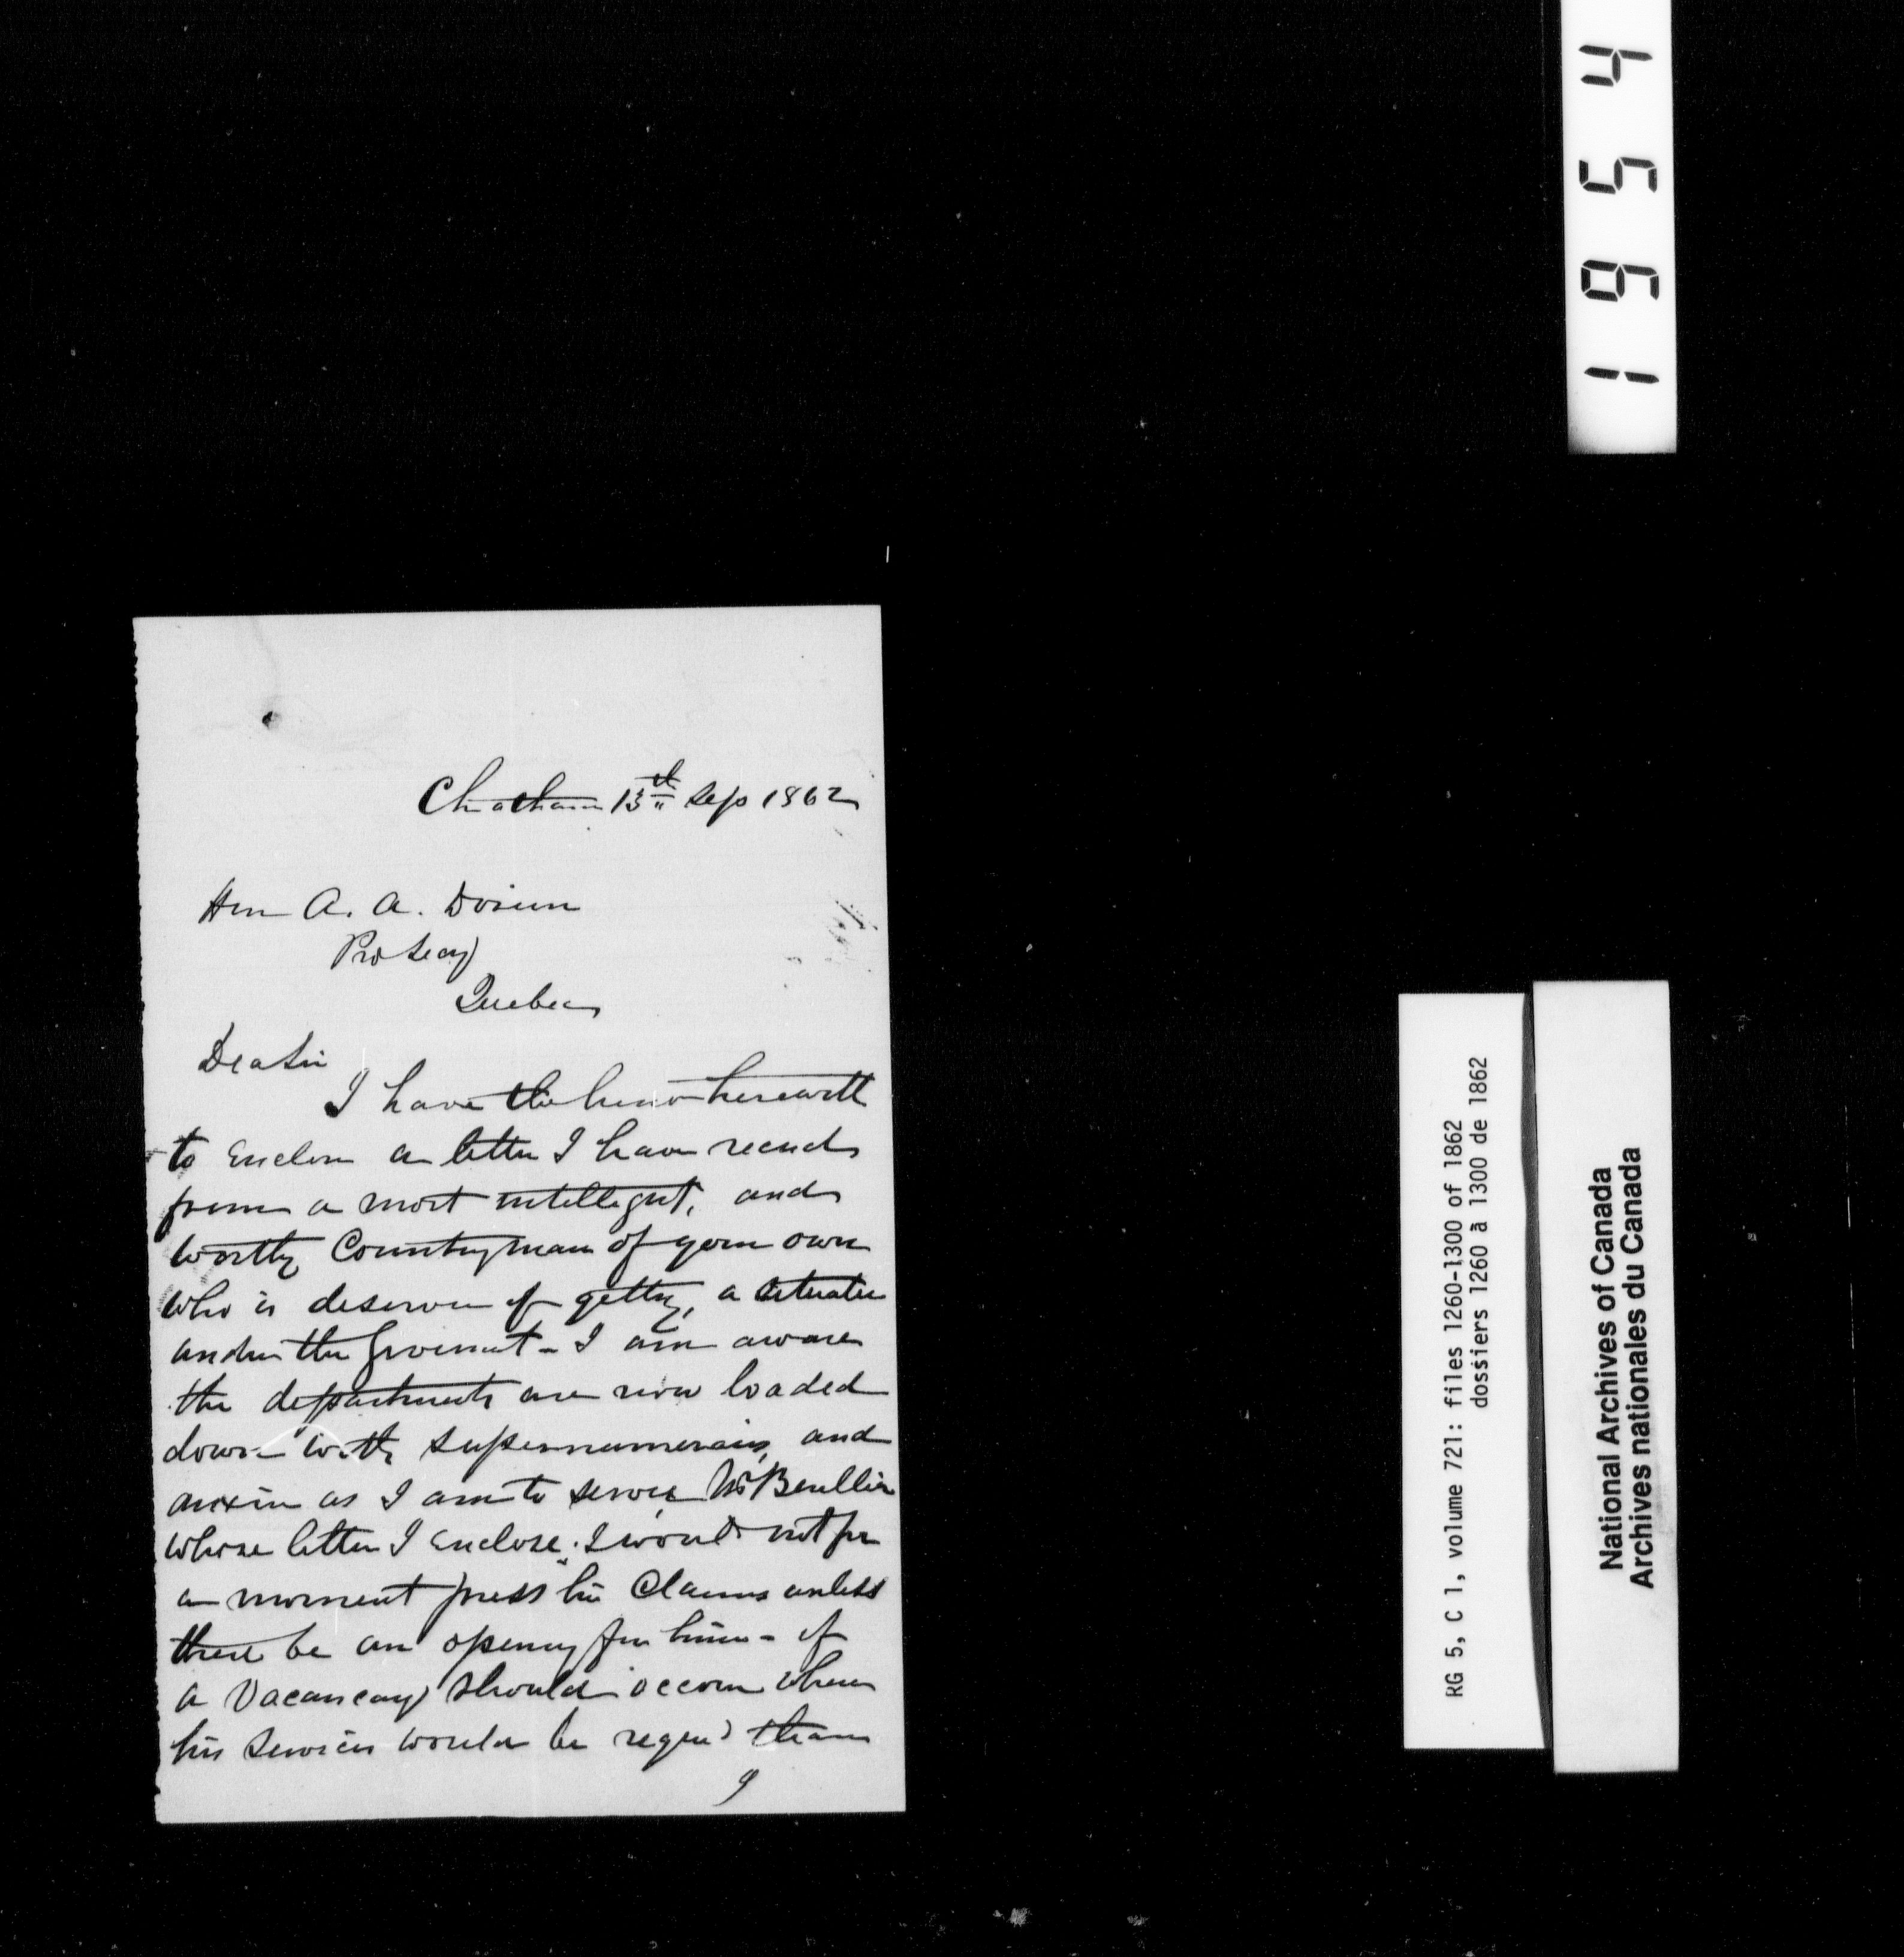 Chatham 13th Sep 1862
Hon A. A. Dorion
Pro Secy
Quebec
Dear Sir
I have the honor herewith
to enclose a letter I have recevd
from a most intelligent, and
worthy Countryman of your own
who is deserven of getting a situation
under the Goverment - I am aware
the departments are now loaded
down with supernumerairs, and
anxious as I am to serve Mr
whose letter I enclose. I would not for
a moment press his Claims unless
there be an opening for him - if
a Vacancy should occour where
his services would be requd than
9
1954
RG 5, C 1, volume 721: files 1260-1300 of 1862
dossiers 1260 à 1300 de 1862
National Archives of Canada
Archives nationales du Canada